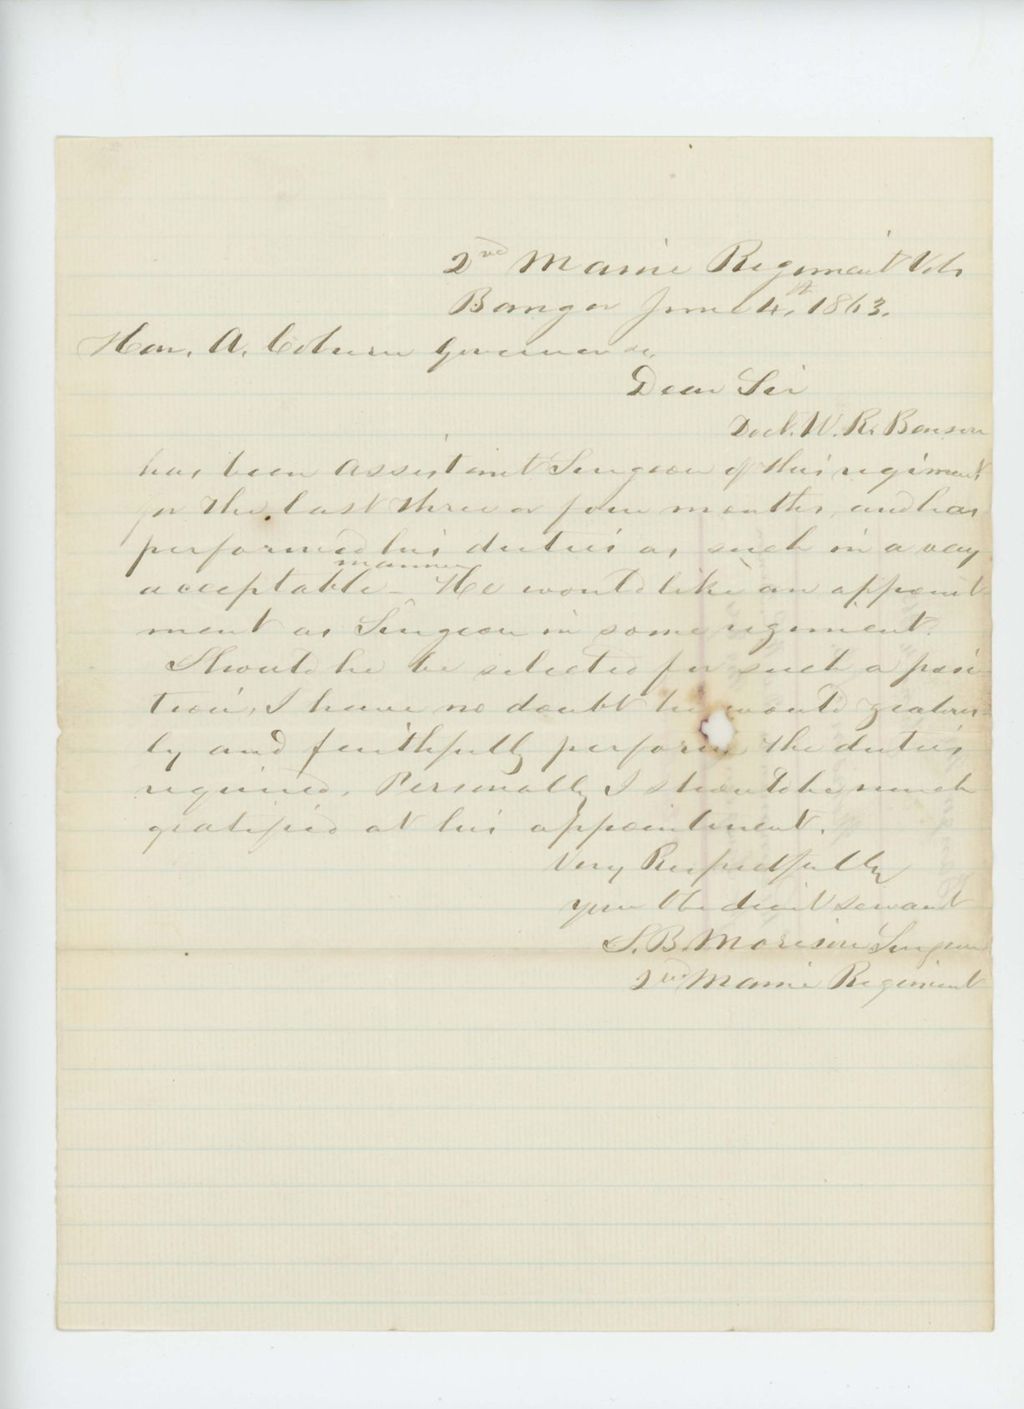 2nd Maine Regiment Vols
Bangor June 4th, 1863.
Hon. A. Coburn Governor &c,
Dear Sir
Doct. W. R. Benson
has been Assistant Surgeon of this regiment
for the last three or four months, and has
performed his duties as such in a very
manner
acceptable - He would like an appoint
ment as Surgeon in some regiment.
Should he be selected for such a posi
tion, I have no doubt he would
ly and faithfully perform the duties
required. Personally I should be much
gratified at his appointment.
Very Respectfully
your obedient servant
S. B. Morison Surgeon
2nd Maine Regiment